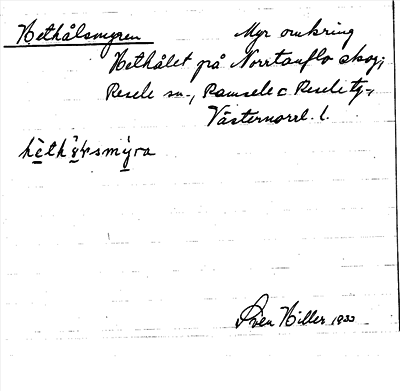 Hethålsmyren Myr omkring
Hethålet på Norrtanflo skog,
Resele sn., Ramsele o. Resele tg.,
Västernorrl. l.
hèth smỳra
Sven Hiller 1933